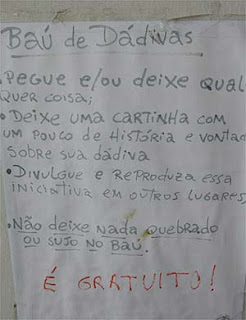 Baú de Dádivas
• Pegue e/ou deixe qual
quer coisa;
• Deixe uma cartinha com
um pouco de história e vontad
sobre sua dádiva
• Divulgue e reproduza essa
iniciativa em outros lugares
• Não deixe nada quebrado
ou sujo no Baú.
É GRATUITO!